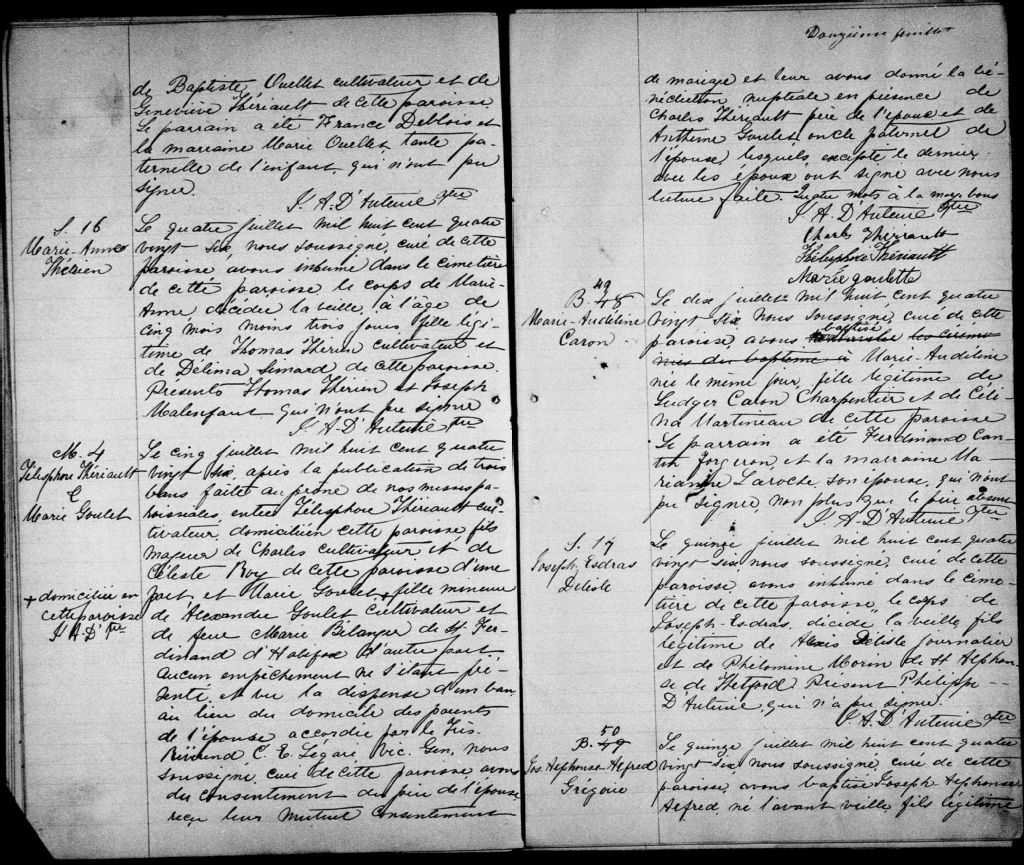 de Baptiste Ouellet cultivateur et de
Geneviève Thériault de cette paroisse
Le parrain a été France Deblois et
la marraine Marie Ouellet, tante pa-
ternelle de l'enfant, qui n'ont pu
signer.
J. A. D'Auteuil Ptre
S. 16
Marie-Anne
Thérien
Le quatre juillet mil huit cent quatre
vingt six nous soussigné, curé de cette
paroisse, avons inhumé dans le cimetière
de cette paroisse le corps de Marie-
Anne, décédée la veille, à l'âge de
cinq mois moins trois jours, fille légi-
time de Thomas Thérien cultivateur et
de Délima Simard de cette paroisse.
Présents Thomas Thérien et Joseph
Malenfant qui n'ont pu signer
J. A. D'Auteuil ptre
M. 4
Télesphore Thériault
&
Marie Goulet
Le cinq juillet mil huit cent quatre
vingt six, après la publication de trois
bans faite au prône de nos messes pa-
roissiales, entre Télesphore Thériault cul-
tivateur, domicilié en cette paroisse, fils
majeur de Charles cultivateur et de
Céleste Roy de cette paroisse d'une
part, et Marie Goulet + fille mineure
+ domiciliée en
cette paroisse
J. A. D' Ptre
de Alexandre Goulet cultivateur et
de feue Marie Bélanger de St. Fer-
dinand d'Halifax d'autre part
aucun empêchement ne s'étant pré-
senté, et vu la dispense d'un ban
au lieu du domicile des parents
de l'épouse accordée par le Très
Révérend C. E. Légaré Vic. Gen. nous
soussigné, curé de cette paroisse, avons
du consentement du père de l'épouse
reçu leur mutuel consentement
Douzième feuillet
de mariage et leur avons donné la bé-
nédiction nuptiale en présence de
Charles Thériault père de l'époux et de
Anthime Goulet, oncle paternel de
l'épouse, lesquels, excepté le dernier,
avec les époux ont signé avec nous
lecture faite. Quatre mots à la marge bons
J. A. D'Auteuil Ptre
Charles Thérriault
Télesphore Thériault
Marie goulette
49
B. 48
Marie-Audeline
Caron
Le dix juillet mil huit cent quatre
vingt six nous soussigné, curé de cette
paroisse avons baptisé les cérémo-
nies du baptême à Marie-Audeline
née le même jour, fille légitime de
Ludger Caron Charpentier et de Céli-
na Martineau de cette paroisse
Le parrain a été Ferdinand Can-
tin forgeron, et la marraine Ma-
rianne Laroche, son épouse, qui n'ont
pu signer, non plus que le père absent
J. A. D'Auteuil Ptre
S. 17
Joseph-Esdras
Deliste
Le quinze juillet mil huit cent quatre
vingt six nous soussigné, curé de cette
paroisse, avons inhumé dans le cime-
tière de cette paroisse, le corps de
Joseph-Esdras, décédé la veille, fils
légitime de Alexis Deliste journalier
et de Philomène Morin de St Alphon-
se de Thetford. Présent Philippe
D'Auteuil, qui n'a pu signer.
J. A. D'Auteuil Ptre
50
B. 49
Jos. Alphonse Alfred
Grégoire
Le quinze juillet mil huit cent quatre
vingt six, nous soussigné, curé de cette
paroisse, avons baptisé Joseph Alphonse
Alfred, né l'avant veille, fils légitime